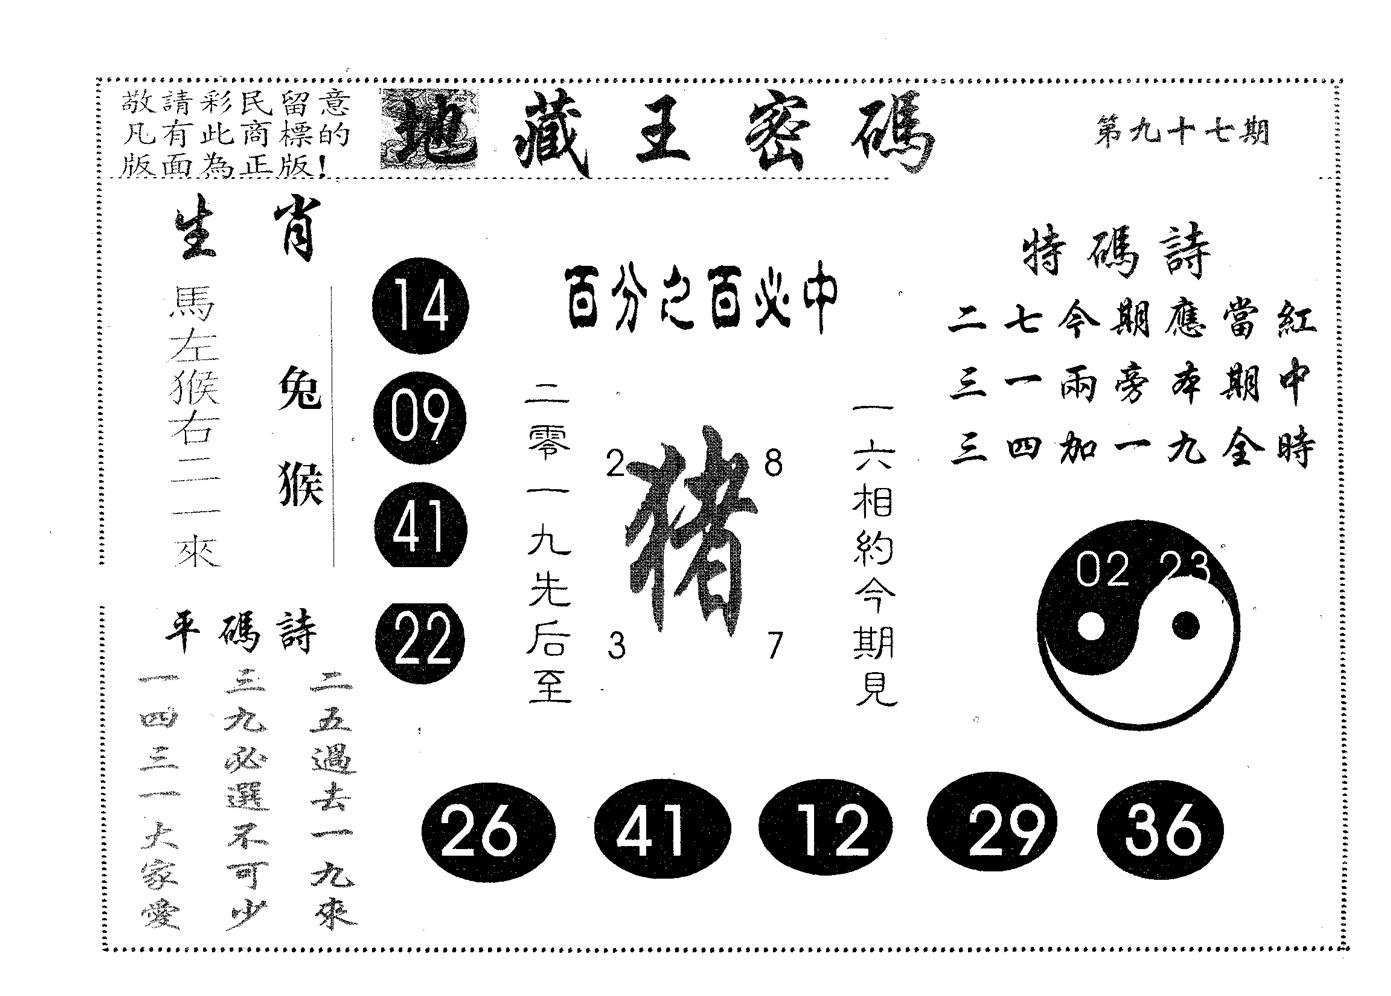 敬請彩民留意
凡有此商標的
版面為正版!
地藏王密碼
第九十七期
生肖
馬左猴右二一來
兔猴
14
09
41
22
百分之百必中
二零一九先后至
2
8
猪
3
7
一六相約今期見
特碼詩
二七今期應當紅
三一兩旁本期中
三四加一九全時
02 23
平碼詩
二五過去一九來
三九必選不可少
一四三一大家愛
26 41 12 29 36